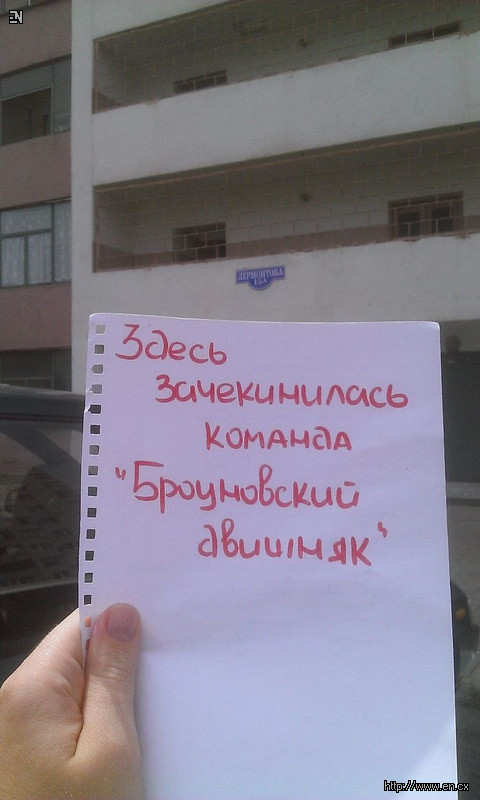 EN
ЛЕРМОНТОВА
15А
Здесь
зачекинилась
команда
"Броуновский
движняк"
http://www.en.cx